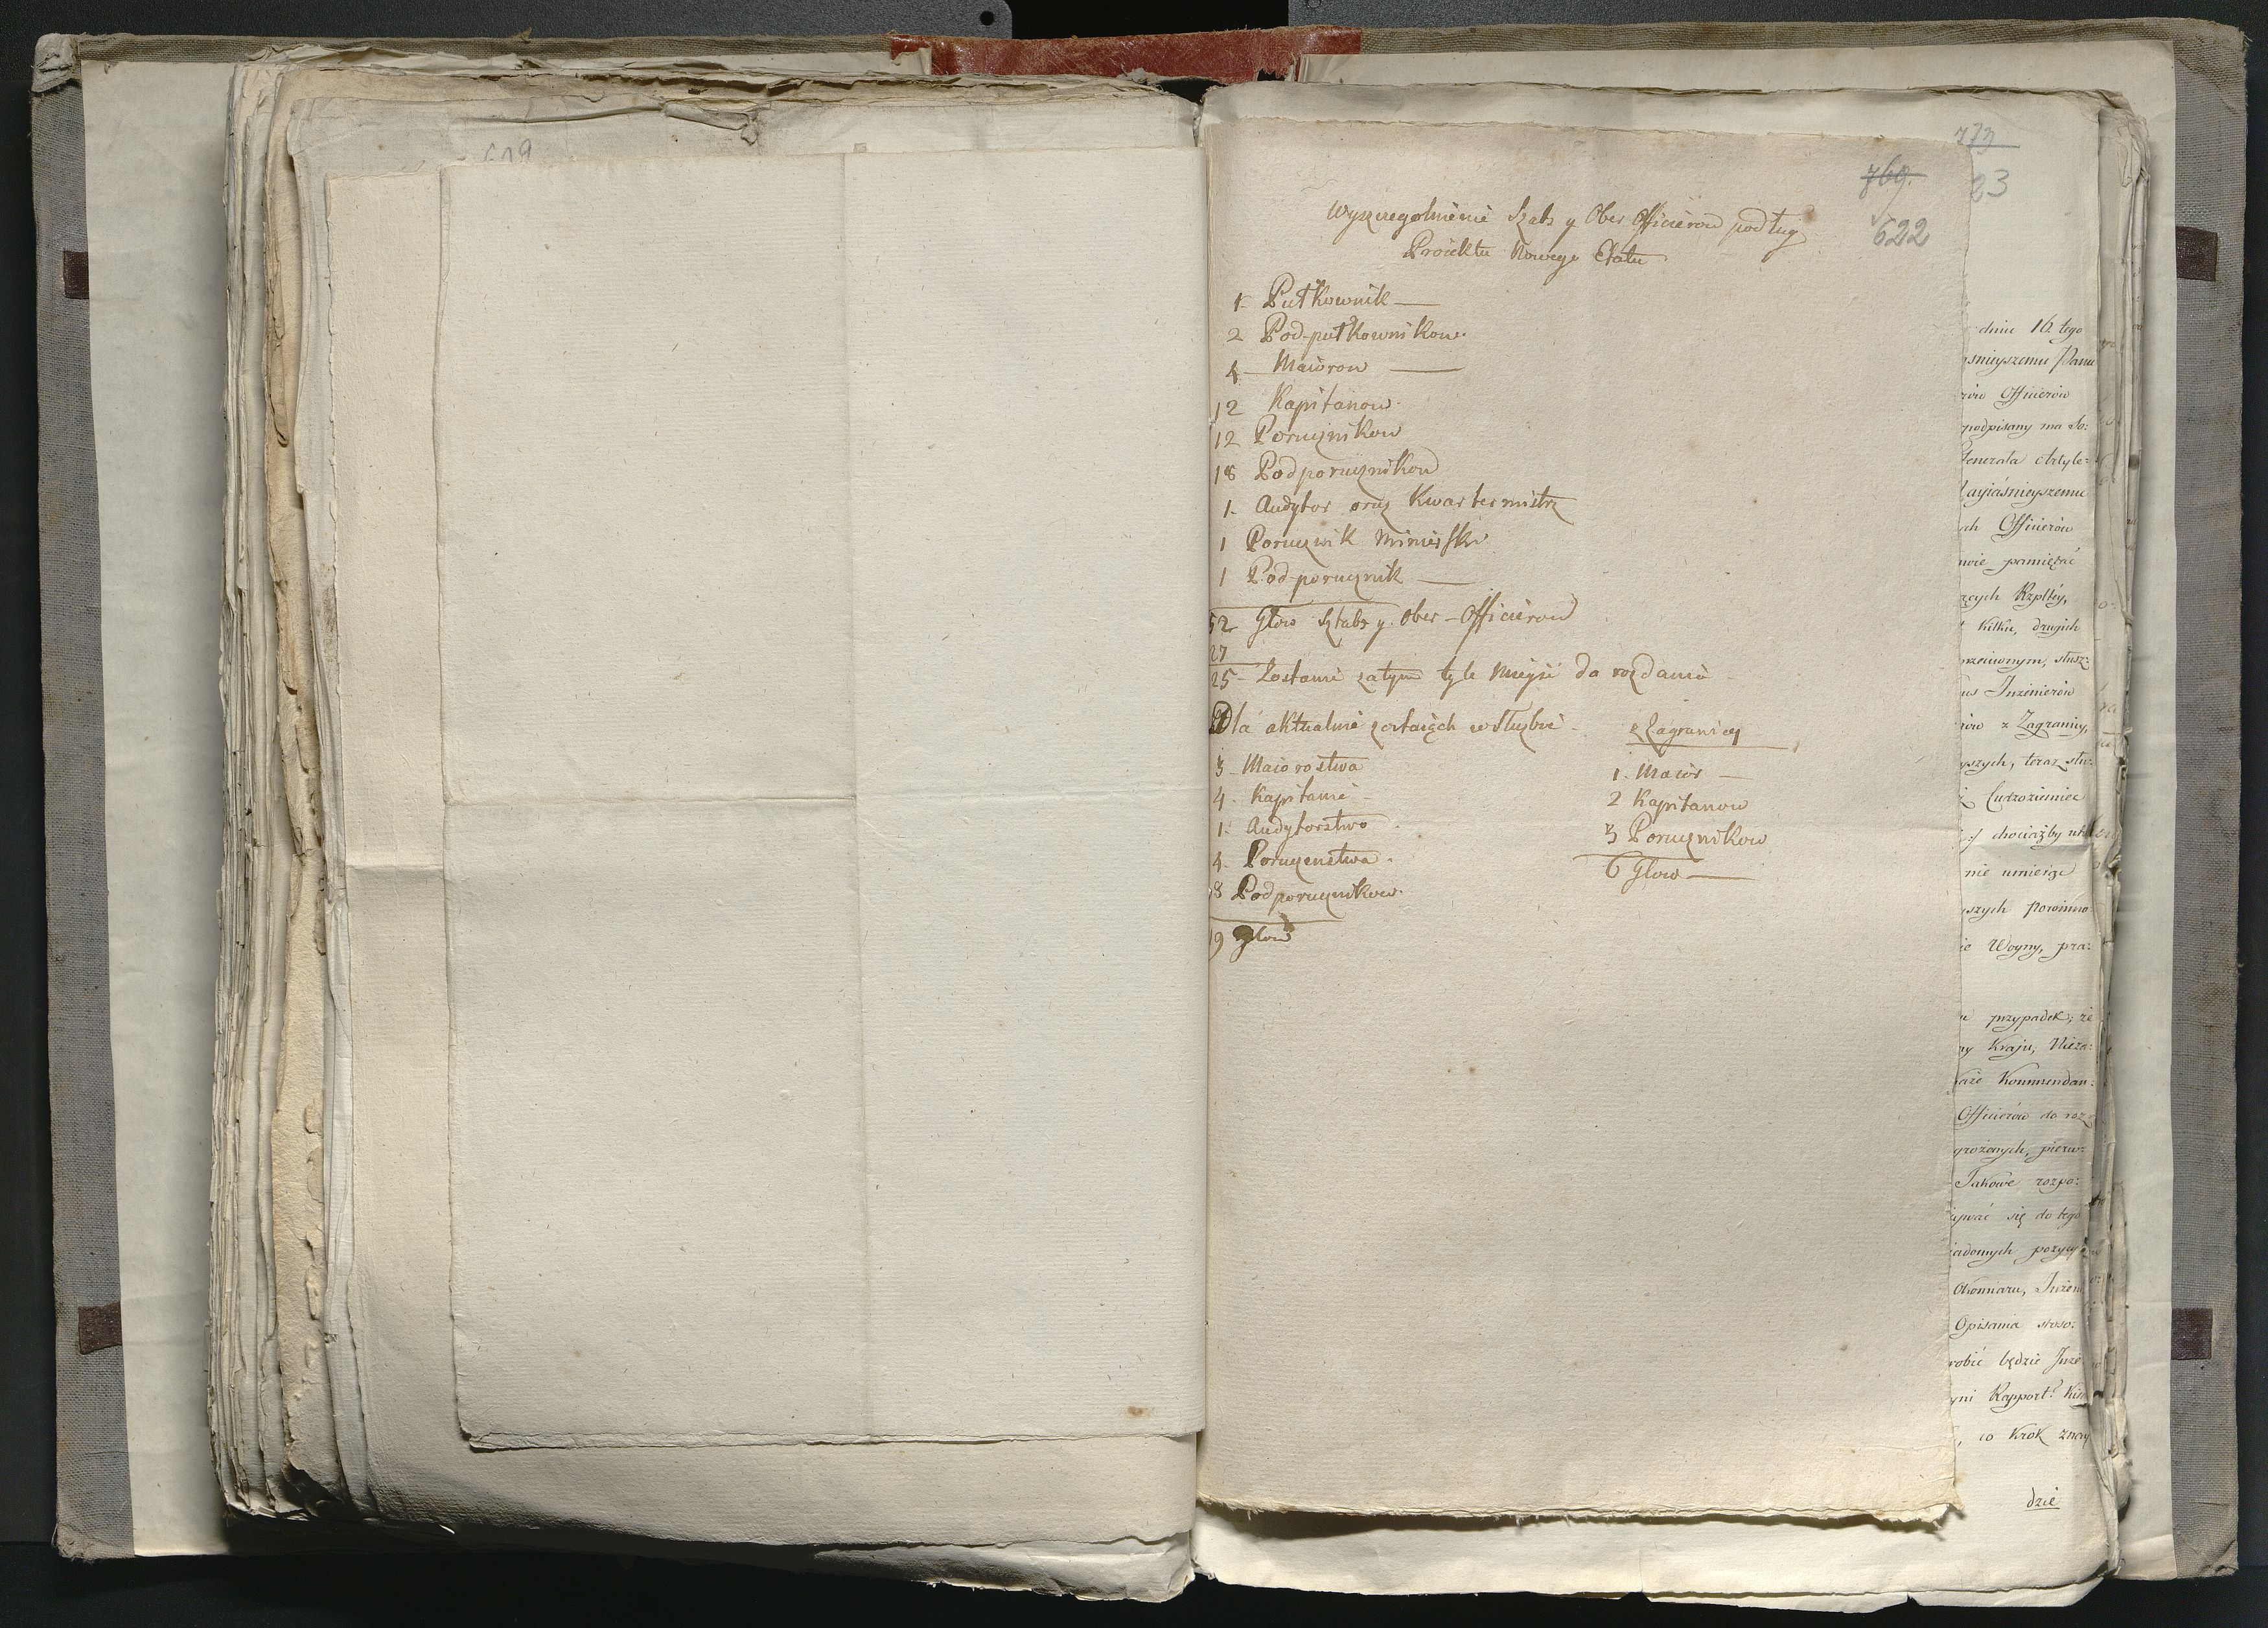 619
769.
622
Wyszczegolnienie Sztab y Ober Officierow podług
Proiektu Nowego Etatu
1 Pułkownik —
2 Pod-pułkownikow.
4 Maiorow —
12 Kapitanow.
12 Porucznikow
18 Podporucznikow
1. Audytor oraz Kwartermistrz
1 Porucznik Minierski
1 Pod-porucznik —
52 Głow Sztabs y Ober-Officierow
27
25 - Zostanie zatym tyle mieysc do rozdania
Dla aktualnie zostaiących w służbie - z Zagranicy
3 - Maiorostwa
4. Kapitanie -
1. Audytorstwo
4. Poruczenstwa.
8 Podporucznikow.
19 głow
1. Maior —
2 Kapitanow
3 Porucznikow
6 Głow —
773
23
dniu 16. tego
śnieyszemu Panu
Officierów
podpisany ma do:
Generała Artyle:
Nayiaśnieyszemu
Officierów
pamiętać
Rzpltey,
kilku, drugich
Inzinierów
z Zagranicy,
teraz słu:
Cudzoziemiec
chociażby
nie umierze
Powinno
Woyny, pra:
przypadek; że
Kraju, Nieza:
Kommendan:
Officierów do roz
pierw:
Takowe rozpo:
się do tego
Opisania stoso:
robić będzie Inże
Rapport
co krok znay
dzie